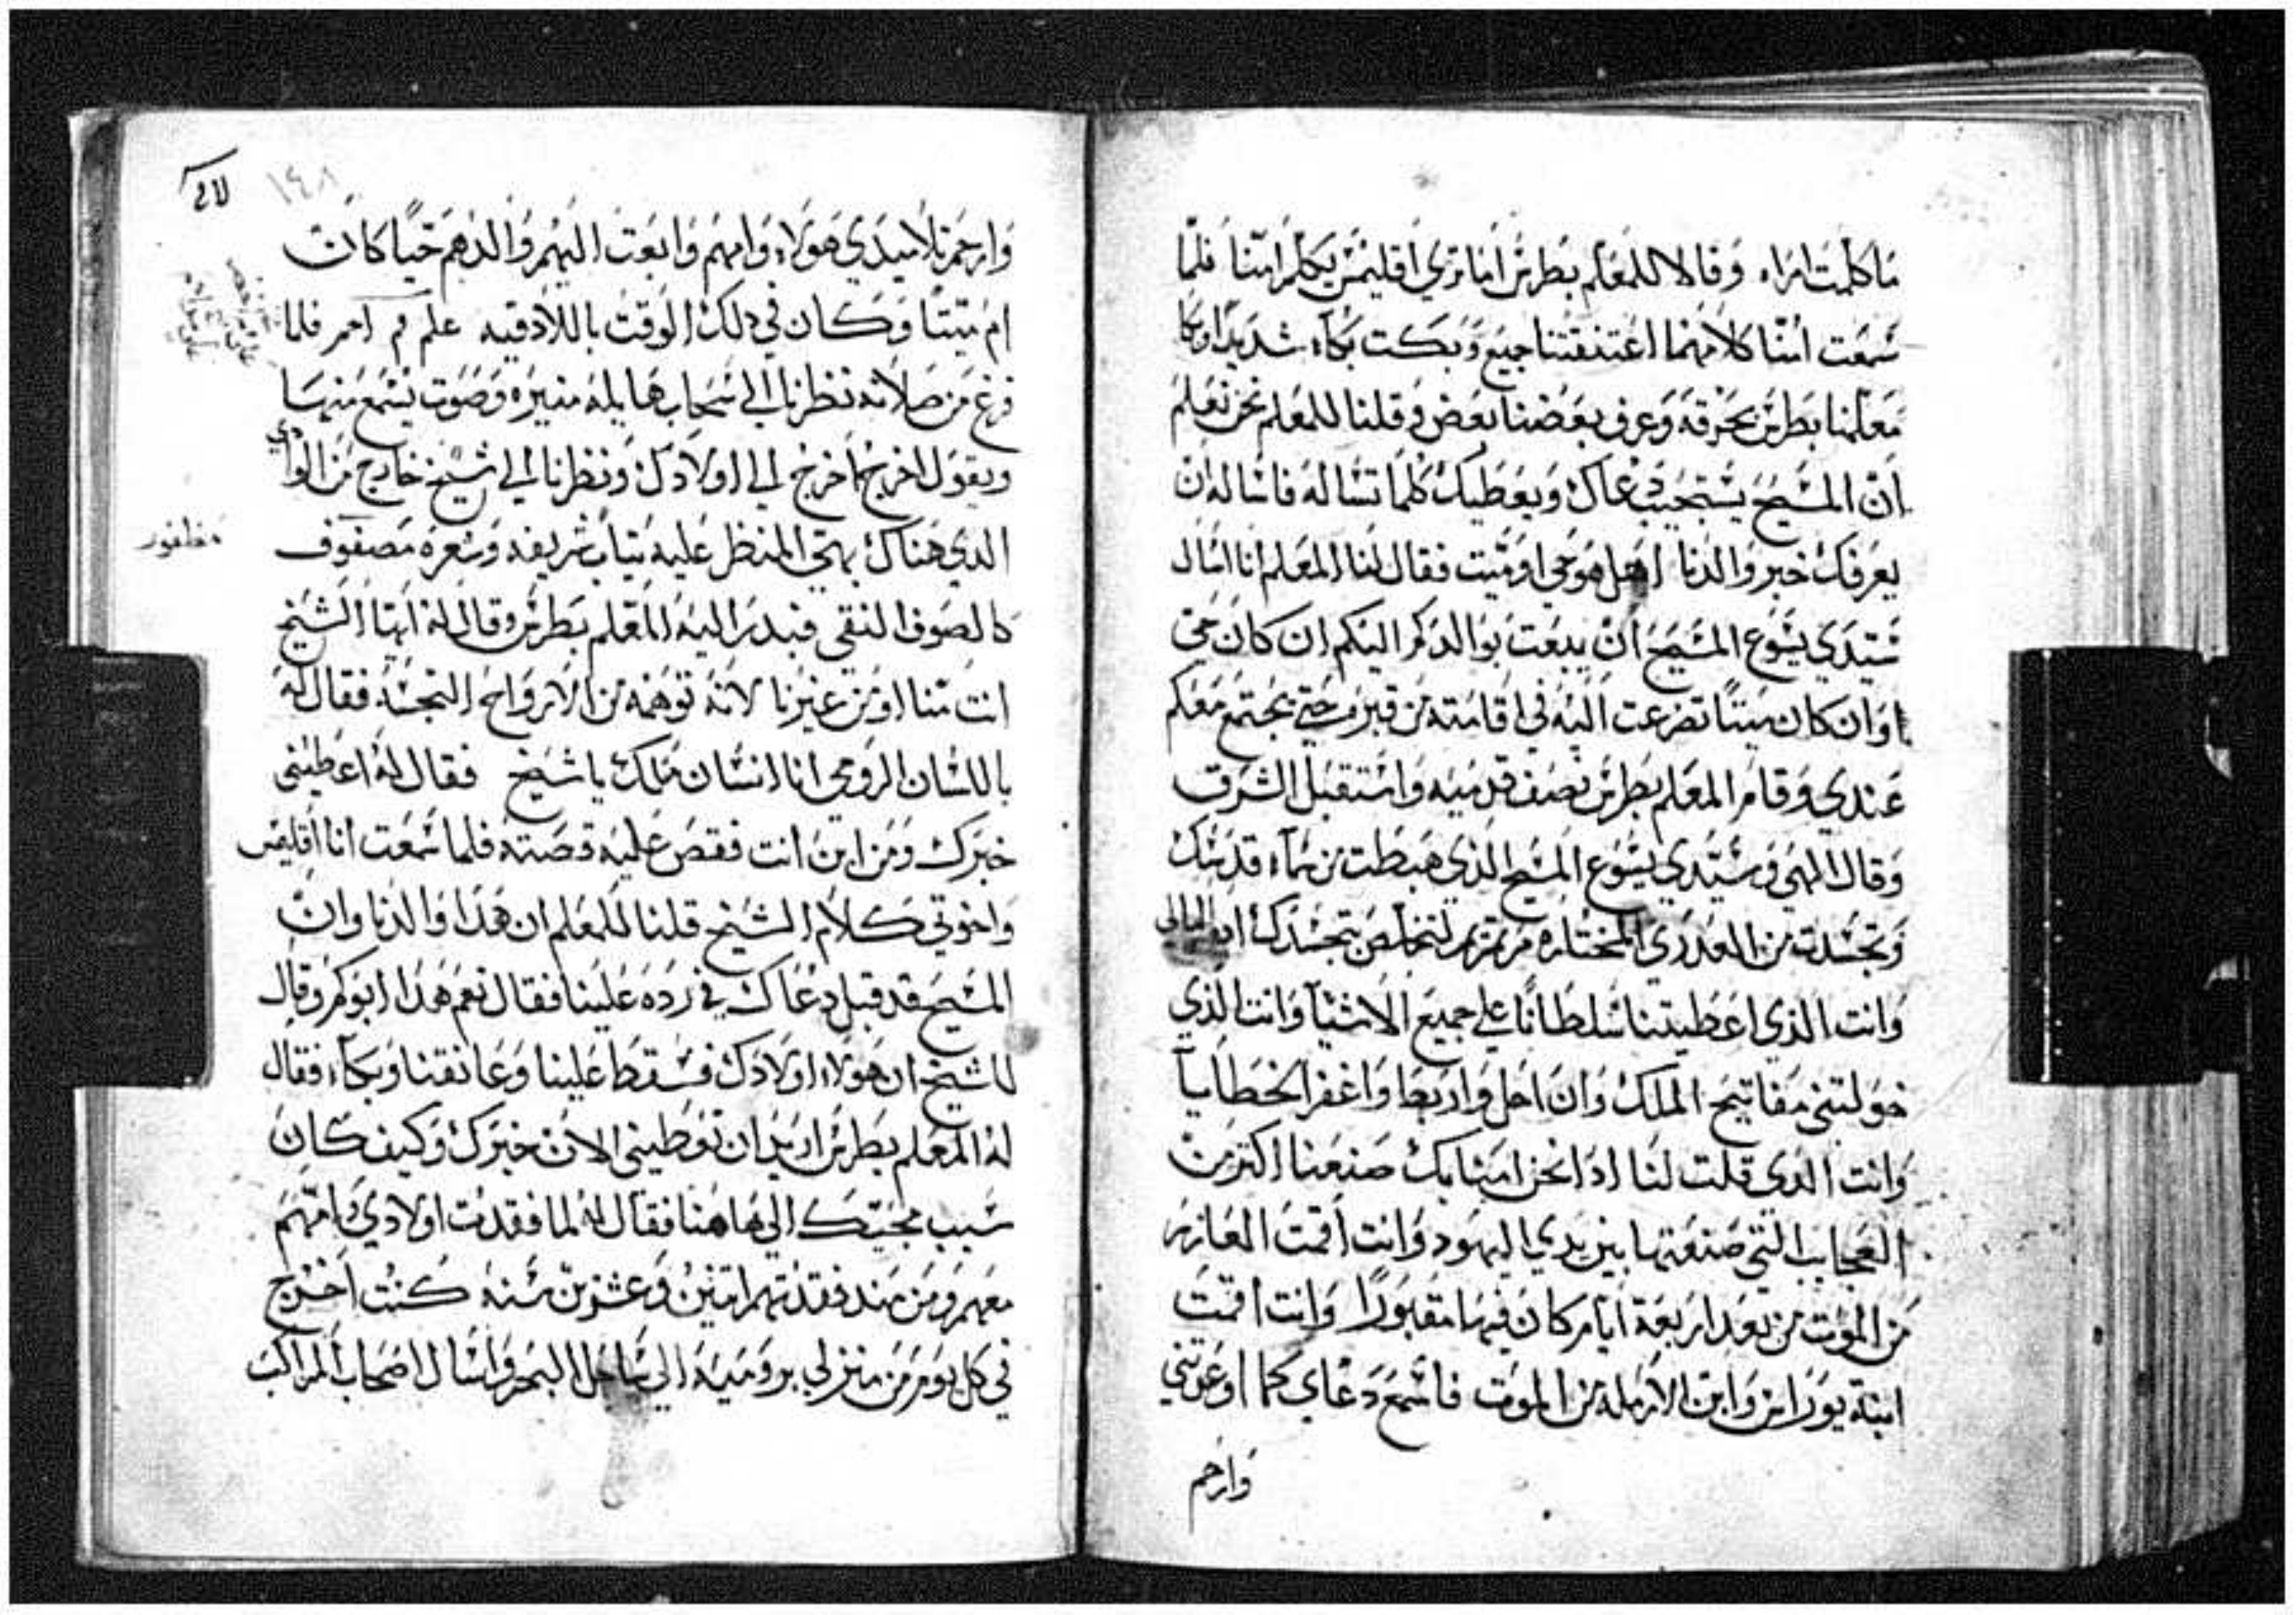 ما كلمت امراه وقالا للمعلم بطرس اما تري اقليمس يكلم امنا فلما
سمعت امنا كلامهما اعتنقتنا جميع وبكت بكاء شديدا وبكا
معلمنا بطرس بحرقه وعرف بعضنا بعض وقلنا للمعلم نحن نعلم
ان المسيح يستجيب دعاك ويعطيك كلما تساله فاساله ان
يعرفك خبر والدنا اهل هو حي او ميت فقال لنا المعلم انا اسال
سيدي يسوع المسيح ان يبعت بوالدكم اليكم ان كان حي
او ان كان ميتا تضرعت اليه في اقامته من قبره حتي يجتمع معكم
عندي وقام المعلم بطرس نصف قدميه واستقبل الشرق
وقال الهي وسيدي يسوع المسيح الذي هبطت من سماء قدسك
وتجسدت من العدري المختاره مرتمريم لتخلص بتجسدك
وانت الذي اعطيتنا سلطانا علي جميع الاشيآ وانت الذي
خولتني مفاتيح الملك وان احل واربط واغفر الخطايا
وانت الدي قلت لنا ادا نحن امنا بك صنعنا اكتر من
العجايب التي صنعتها بين يدي اليهود وانت اقمت العازر
من الموت من بعد اربعة ايام كان فيها مقبورا وانت اقمت
ابنة يوراس وابن الارمله من الموت فاسمع دعاي كما اوعدتني
وارحم
١٤٨
وارحم تلاميدي هولاء وامهم وابعت اليهم والدهم حيا كان
ام ميتا وكان في دلك الوقت باللادقيه فلما
فرغ من صلاته نظرنا الي سحاب هايله منيره وصوت يسمع منها
ويقول اخرج اخرج الي اولادك ونظرنا الي شيخ خارج من الوادي
الدي هناك بهي المنظر عليه تياب شريفه وشعره مصفوف
كالصوف النقي فبدر اليه المعلم بطرس وقال له ايها الشيخ
انت منا او من غيرنا لانه توهمه من الارواح النجسه فقال له
باللسان الرومي انا انسان متلك يا شيخ فقال له اعطيني
خبرك ومن اين انت فقص عليه قصته فلما سمعت انا اقليمس
واخوتي كلام الشيخ قلنا للمعلم ان هدا والدنا وان
المسيح قد قبل دعاك في رده علينا فقال نعم هدا ابوكم وقال
للشيخ ان هولاء اولادك فسقط علينا وعانقنا وبكاء فقال
له المعلم بطرس اريد ان تعطيني الان خبرك وكيف كان
سبب مجيتك الي هاهنا فقال له لما فقدت اولادي وامهم
معهم ومن مند فقدتهم اتنين وعشرين سنه كنت اخرج
في كل يوم من منزلي بروميه الي ساحل البحر واسال اصحاب المراكب